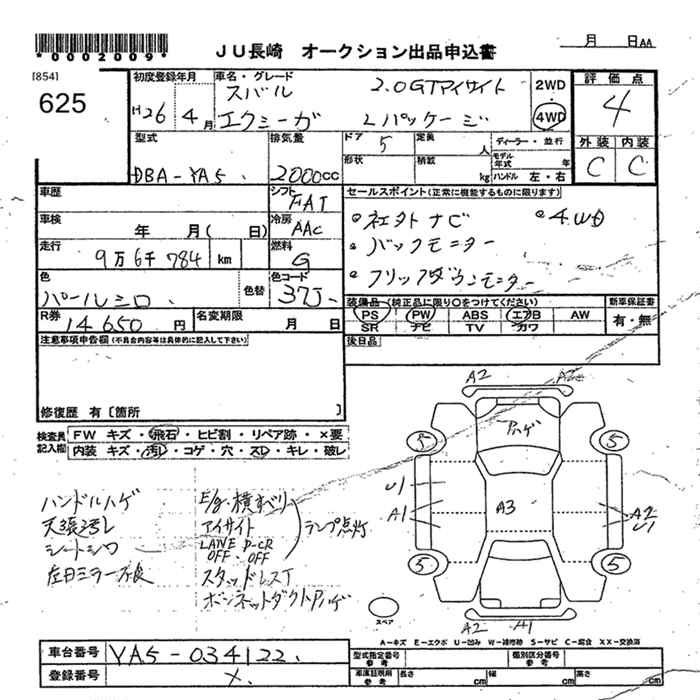 *0002009*
JU長崎 オークション出品申込書
月 日AA
[854]
625
初度登録年月
H26年4月
車名・グレード
スバル 2.0GTアイサイト
エクシーガ Lパッケージ
2WD
4WD
評価点
4
型式
DBA-YA5
排気量
2000cc
ドア
5
定員
人
形状
積載
kg
ディーラー・並行
モデル年式 年
ハンドル 左・右
外装 内装
C C
車歴
シフト
FAT
車検
年 月( 日)
冷房
AAC
走行
9万6千784 km
燃料
G
色
パールシロ
色替
色コード
37J
R券
14650円
名変期限
月 日
セールスポイント(正常に機能するものに限ります)
社外ナビ 4WD
バックモニター
フリップダウンモニター
装備品(純正品に限り○をつけてください)
PS PW ABS エアB AW
SR ナビ TV カワ
新車保証書
有・無
後日品
注意事項申告欄(不具合内容等は具体的に記入して下さい)
修復歴 有〔箇所 〕
検査員記入欄
FW キズ・飛石・ヒビ割・リペア跡・×要
内装 キズ・汚れ・コゲ・穴・スレ・キレ・破レ
ハンドルハゲ
天張汚れ
シートシワ
左日ミラー不良
E/g・横すべり
アイサイト
LANE P-CR
OFF・OFF
ランプ点灯
スタッドレスT
ボンネットダクトハゲ
A2 A2
ハゲ
5 5
U1
A1
A3
A2
U1
5 5
A2 A1
スペア
A-キズ E-エクボ U-凹み W-補修跡 S-サビ C-腐食 XX-交換済
車台番号
YA5-034122
登録番号
×
型式指定番号
参考
類別区分番号
参考
車庫証明用
参考
長さ cm
幅 cm
高さ cm